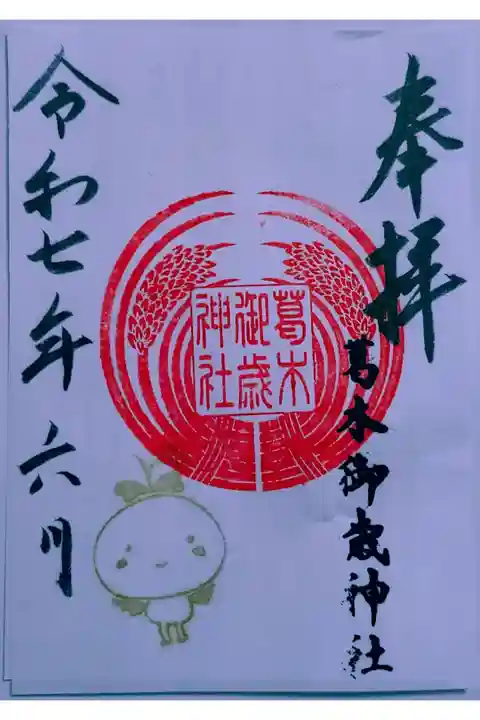 奉拝
葛木御歳神社
葛木
御歳
神社
令和七年六月